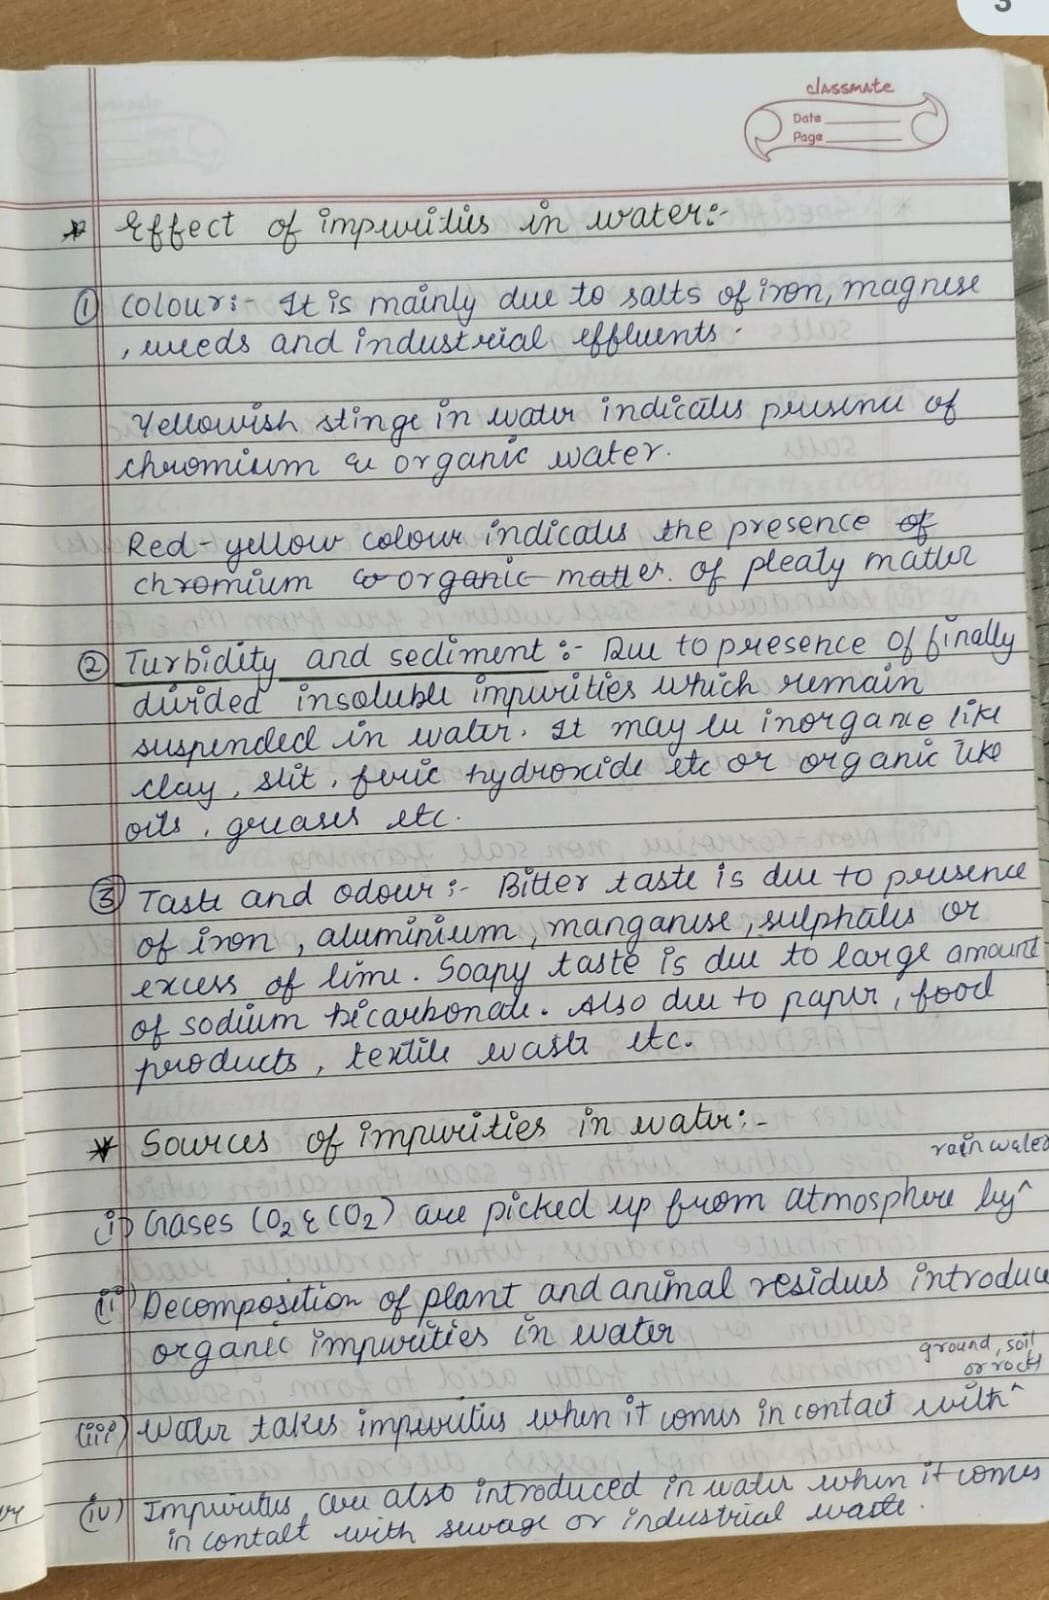 3
classmate
Date
Page
* Effect of impurities in water:-
① Colour:- It is mainly due to salts of iron, magnese
, weeds and industrial effluents.
Yellowish stinge in water indicates presence of
chromium & organic water.
Red-yellow colour indicates the presence of
chromium & organic matter. of pleaty matter
② Turbidity and sediment :- Due to presence of finally
divided insoluble impurities which remain
suspended in water. It may be inorganic like
clay, slit, feric hydroxide etc or organic like
oils, greases etc.
③ Taste and odour :- Bitter taste is due to presence
of iron, aluminium, manganese, sulphates or
excess of lime. Soapy taste is due to large amount
of sodium bicarbonate. Also due to paper, food
products, textile waste etc.
* Sources of impurities in water:-
rain water
(i) Gases (O2 & CO2) are picked up from atmosphere by^
(ii) Decomposition of plant and animal residues introduce
organic impurities in water
ground, soil
or rocks
(iii) Water takes impurities when it comes in contact with^
(iv) Impurites are also introduced in water when it comes
in contalt with sewage or industrial waste.